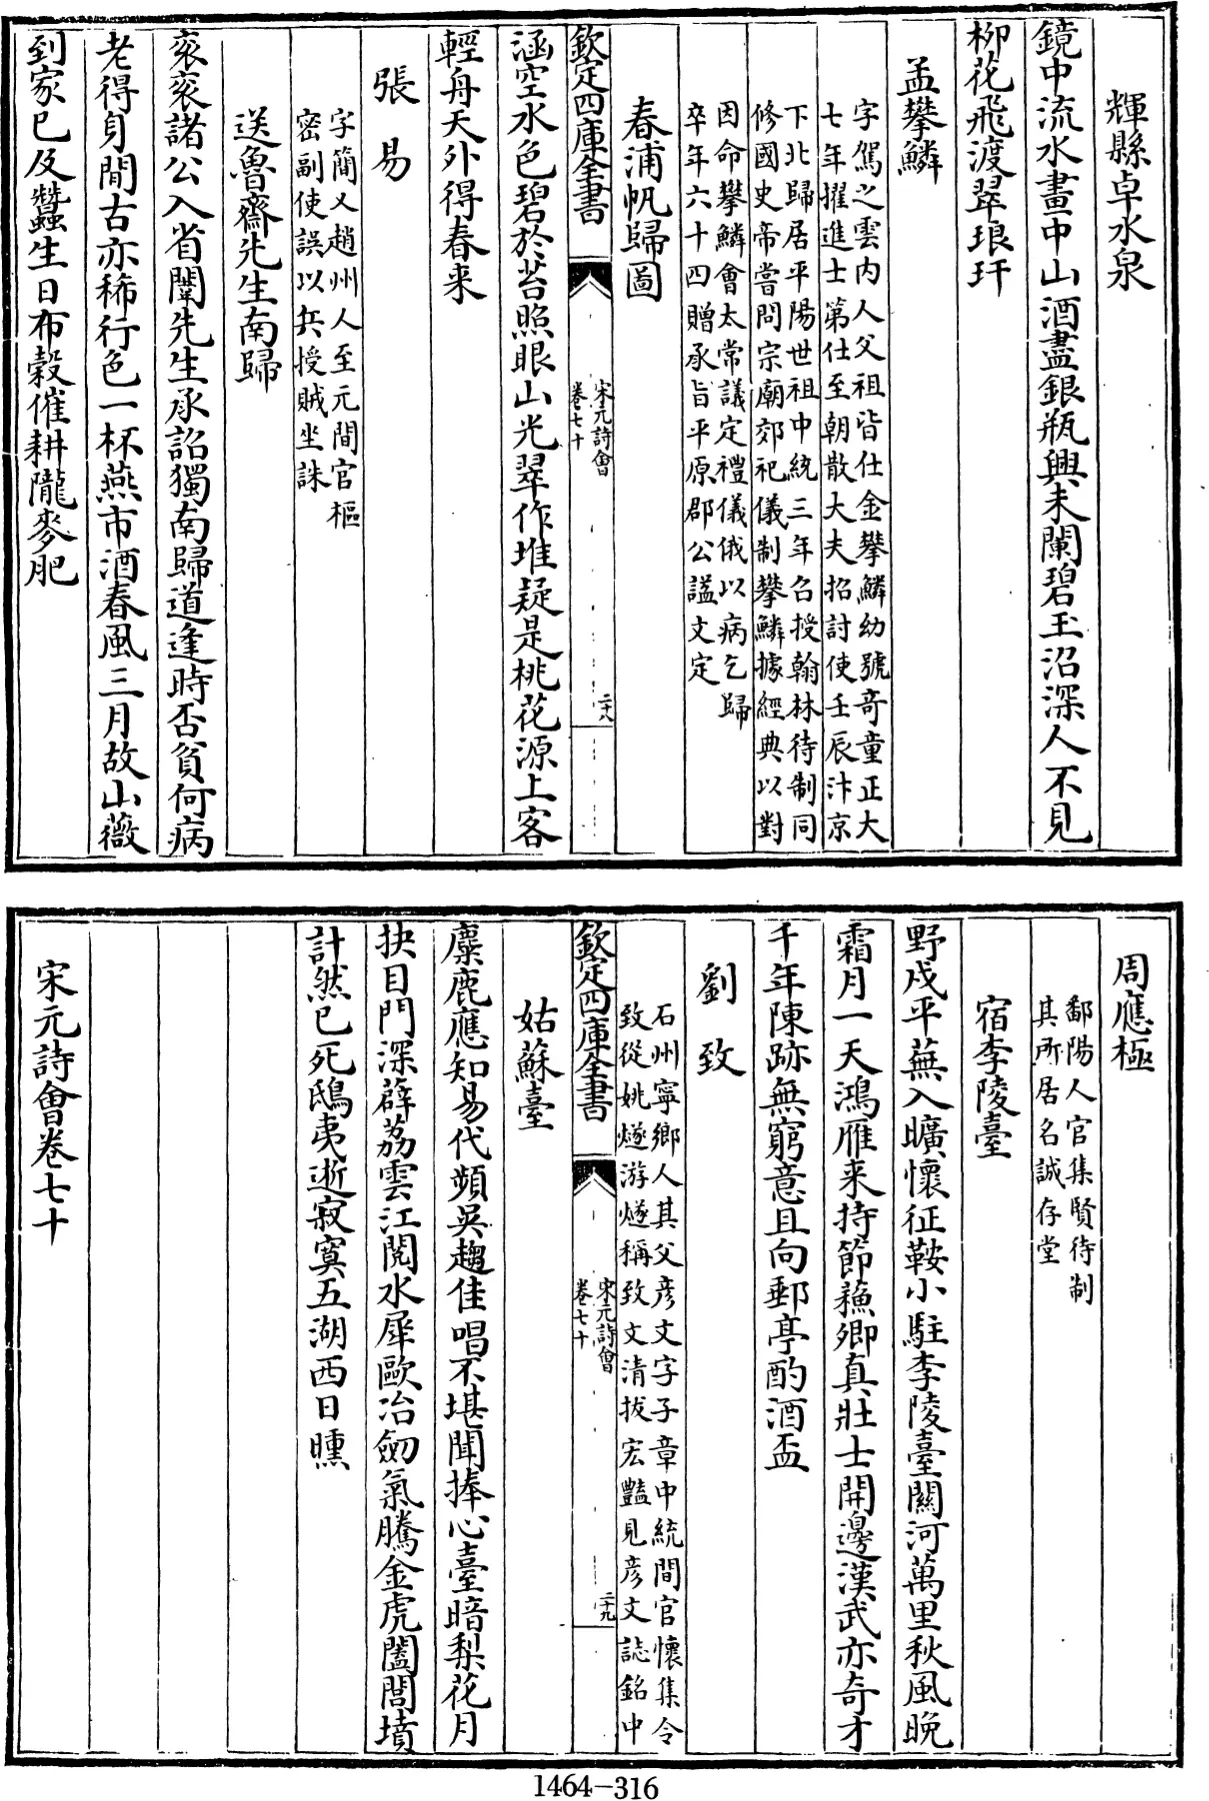 輝縣卓水泉
鏡中流水畫中山酒盡銀瓶興未闌碧玉沼深人不見
柳花飛渡翠琅玕
孟攀鱗
字駕之雲内人父祖皆仕金攀鱗幼號奇童正大
七年擢進士第仕至朝散大夫招討使壬辰汴京
下北歸居平陽世祖中統三年召授翰林待制同
修國史帝嘗問宗廟郊祀儀制攀鱗據經典以對
因命攀鱗會太常議定禮儀俄以病乞歸
卒年六十四贈承旨平原郡公諡文定
春浦帆歸圖
欽定四庫全書
宋元詩會
卷七十
二十八
涵空水色碧於苔照眼山光翠作堆疑是桃花源上客
輕舟天外得春来
張易
字簡乂趙州人至元間官樞
密副使誤以兵授賊坐誅
送魯齋先生南歸
衮衮諸公入省闈先生承詔獨南歸道逢時否貧何病
老得身閒古亦稀行色一杯燕市酒春風三月故山薇
到家已及蠶生日布穀催耕隴麥肥
周應極
鄱陽人官集賢待制
其所居名誠存堂
宿李陵臺
野戍平蕪入曠懷征鞍小駐李陵臺關河萬里秋風晚
霜月一天鴻雁来持節蘓卿真壯士開邊漢武亦奇才
千年陳跡無窮意且向郵亭酌酒盃
劉致
石州寧鄉人其父彦文字子章中統間官懷集令
致從姚燧游燧稱致文清拔宏豔見彦文誌銘中
欽定四庫全書
宋元詩會
卷七十
二十九
姑蘇臺
麋鹿應知易代頻吳趨佳唱不堪聞捧心臺暗梨花月
抉目門深薜荔雲江閱水犀歐冶劒氣騰金虎闔閭墳
計然已死鴟夷逝寂寞五湖西日曛
宋元詩會卷七十
1464-316